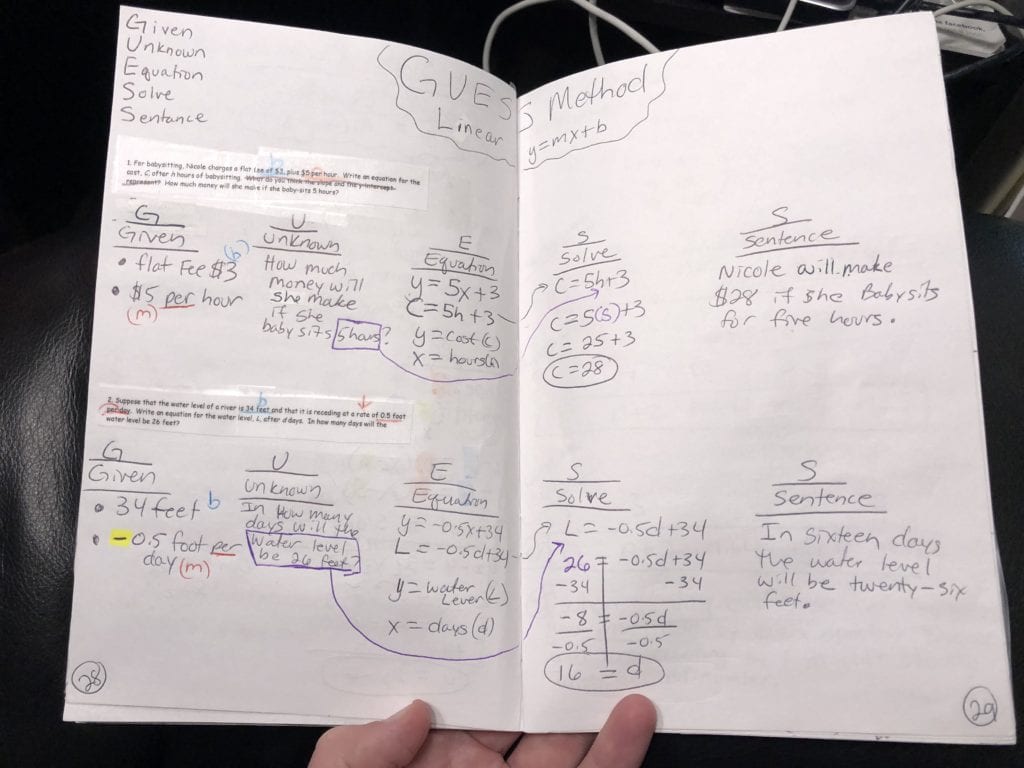 Given
Unknown
Equation
Solve
Sentance
GUESS Method
Linear y=mx+b
1. For babysitting, Nicole charges a flat fee of $3, plus $5 per hour. Write an equation for the
cost, C, after h hours of babysitting. What do you think the slope and the y-intercept
represent? How much money will she make if she baby-sits 5 hours?
b
G
Given
• flat Fee $3 (b)
• $5 per hour
(m)
U
Unknown
How much
money will
she make
if she
babysits 5 hours?
E
Equation
y = 5x+3
C = 5h+3
y = cost (c)
x = hours(h)
S
Solve
C = 5h+3
C = 5(5)+3
C = 25+3
C = 28
S
Sentence
Nicole will make
$28 if she Babysits
for five hours.
2. Suppose that the water level of a river is 34 feet and that it is receding at a rate of 0.5 foot
per day. Write an equation for the water level, L, after d days. In how many days will the
water level be 26 feet?
b
G
Given
• 34 feet b
• -0.5 foot per
day (m)
U
Unknown
In How many
days will the
Water level
be 26 feet?
E
Equation
y = -0.5x+34
L = -0.5d+34
y = water
Lever (L)
x = days (d)
S
Solve
L = -0.5d+34
26 = -0.5d+34
-34 -34
-8 = -0.5d
-0.5 -0.5
16 = d
S
Sentence
In Sixteen days
the water level
will be twenty-six
feet.
28
29
facebook.